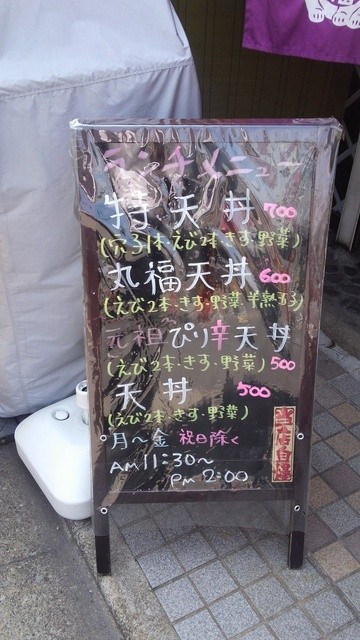 ランチメニュー
特天丼 700
(穴子1本・えび2本・きす・野菜)
丸福天丼 600
(えび2本・きす・野菜 半熟玉子)
元祖ぴり辛天丼
(えび2本・きす・野菜) 500
天丼 500
(えび2本・きす・野菜)
月〜金 祝日除く
AM11:30〜
PM 2:00
当店自慢